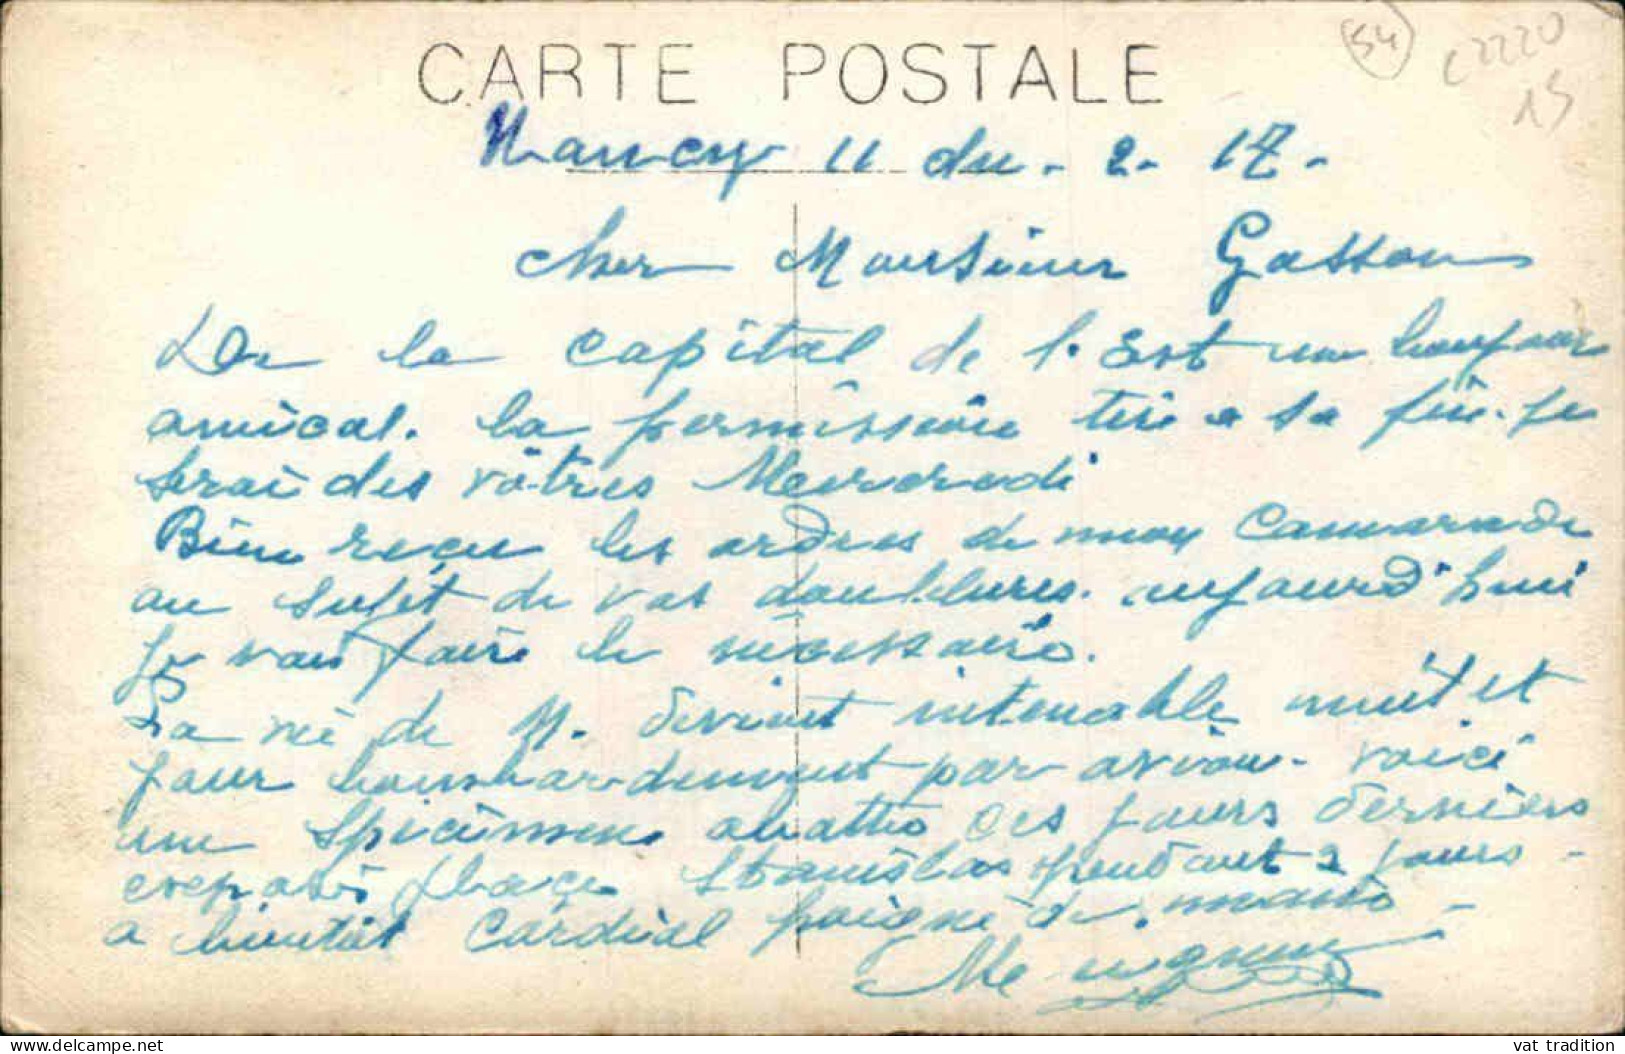 CARTE POSTALE
54
C2220
15
Nancy 11 du - 2 - 17 -
cher Monsieur Gaston
De la capital de l'Est un bonjour
amical. la permission tire a sa fin. je
serai des vôtres Mercredi
Bien reçu les ordres de mon Camarade
au sujet de vos doublures. aujourd'hui
je vais faire le nécessaire.
La vie de N. devient intenable nuit et
jour bombardement par avion. voici
une spécimene abattu ces jours derniers
exposé place Stanislas pendant 2 jours -
a bientôt Cordial poigné de main -
vat tradition